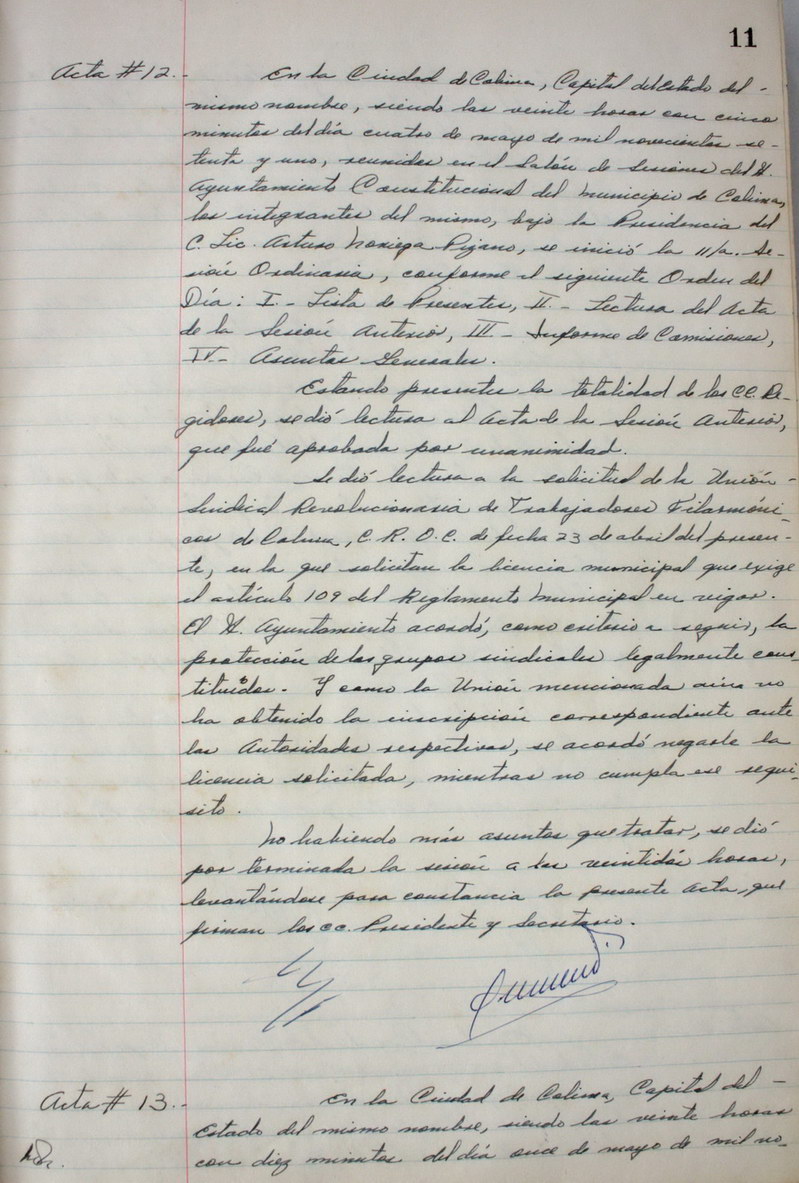 11
Acta # 12.-
En la Ciudad de Colima, Capital del Estado del -
mismo nombre, siendo las veinte horas con cinco
minutos del día cuatro de mayo de mil novecientos se-
tenta y uno, reunidos en el Salón de Sesiones del H.
Ayuntamiento Constitucional del Municipio de Colima,
los integrantes del mismo, bajo la Presidencia del
C. Lic. Arturo Noriega Pizano, se inició la 11/a. Se-
sión Ordinaria, conforme el siguiente Orden del
Día: I.- Lista de Presentes, II.- Lectura del Acta
de la Sesión Anterior, III - Informe de Comisiones,
IV- Asuntos Generales.
Estando presentes la totalidad de los CC. Re-
gidores, se dió lectura al Acta de la Sesión Anterior,
que fué aprobada por unanimidad.
Se dió lectura a la solicitud de la Unión -
Sindical Revolucionaria de Trabajadores Filarmóni-
cos de Colima, C. R. O. C. de fecha 23 de abril del presen-
te, en la que solicitan la licencia municipal que exige
el artículo 109 del Reglamento Municipal en vigor.
El H. Ayuntamiento acordó, como criterio a seguir, la
protección de los grupos sindicales legalmente cons-
tituídos. Y como la Unión mencionada aún no
ha obtenido la inscripción correspondiente ante
las Autoridades respectivas, se acordó negarle la
licencia solicitada, mientras no cumpla ese requi-
sito.
No habiendo más asuntos que tratar, se dió
por terminada la sesión a las veintidós horas,
levantándose para constancia la presente Acta, que
firman los CC. Presidente y Secretario.
Acta # 13.-
En la Ciudad de Colima, Capital del -
Estado del mismo nombre, siendo las veinte horas
con diez minutos del día once de mayo de mil no-